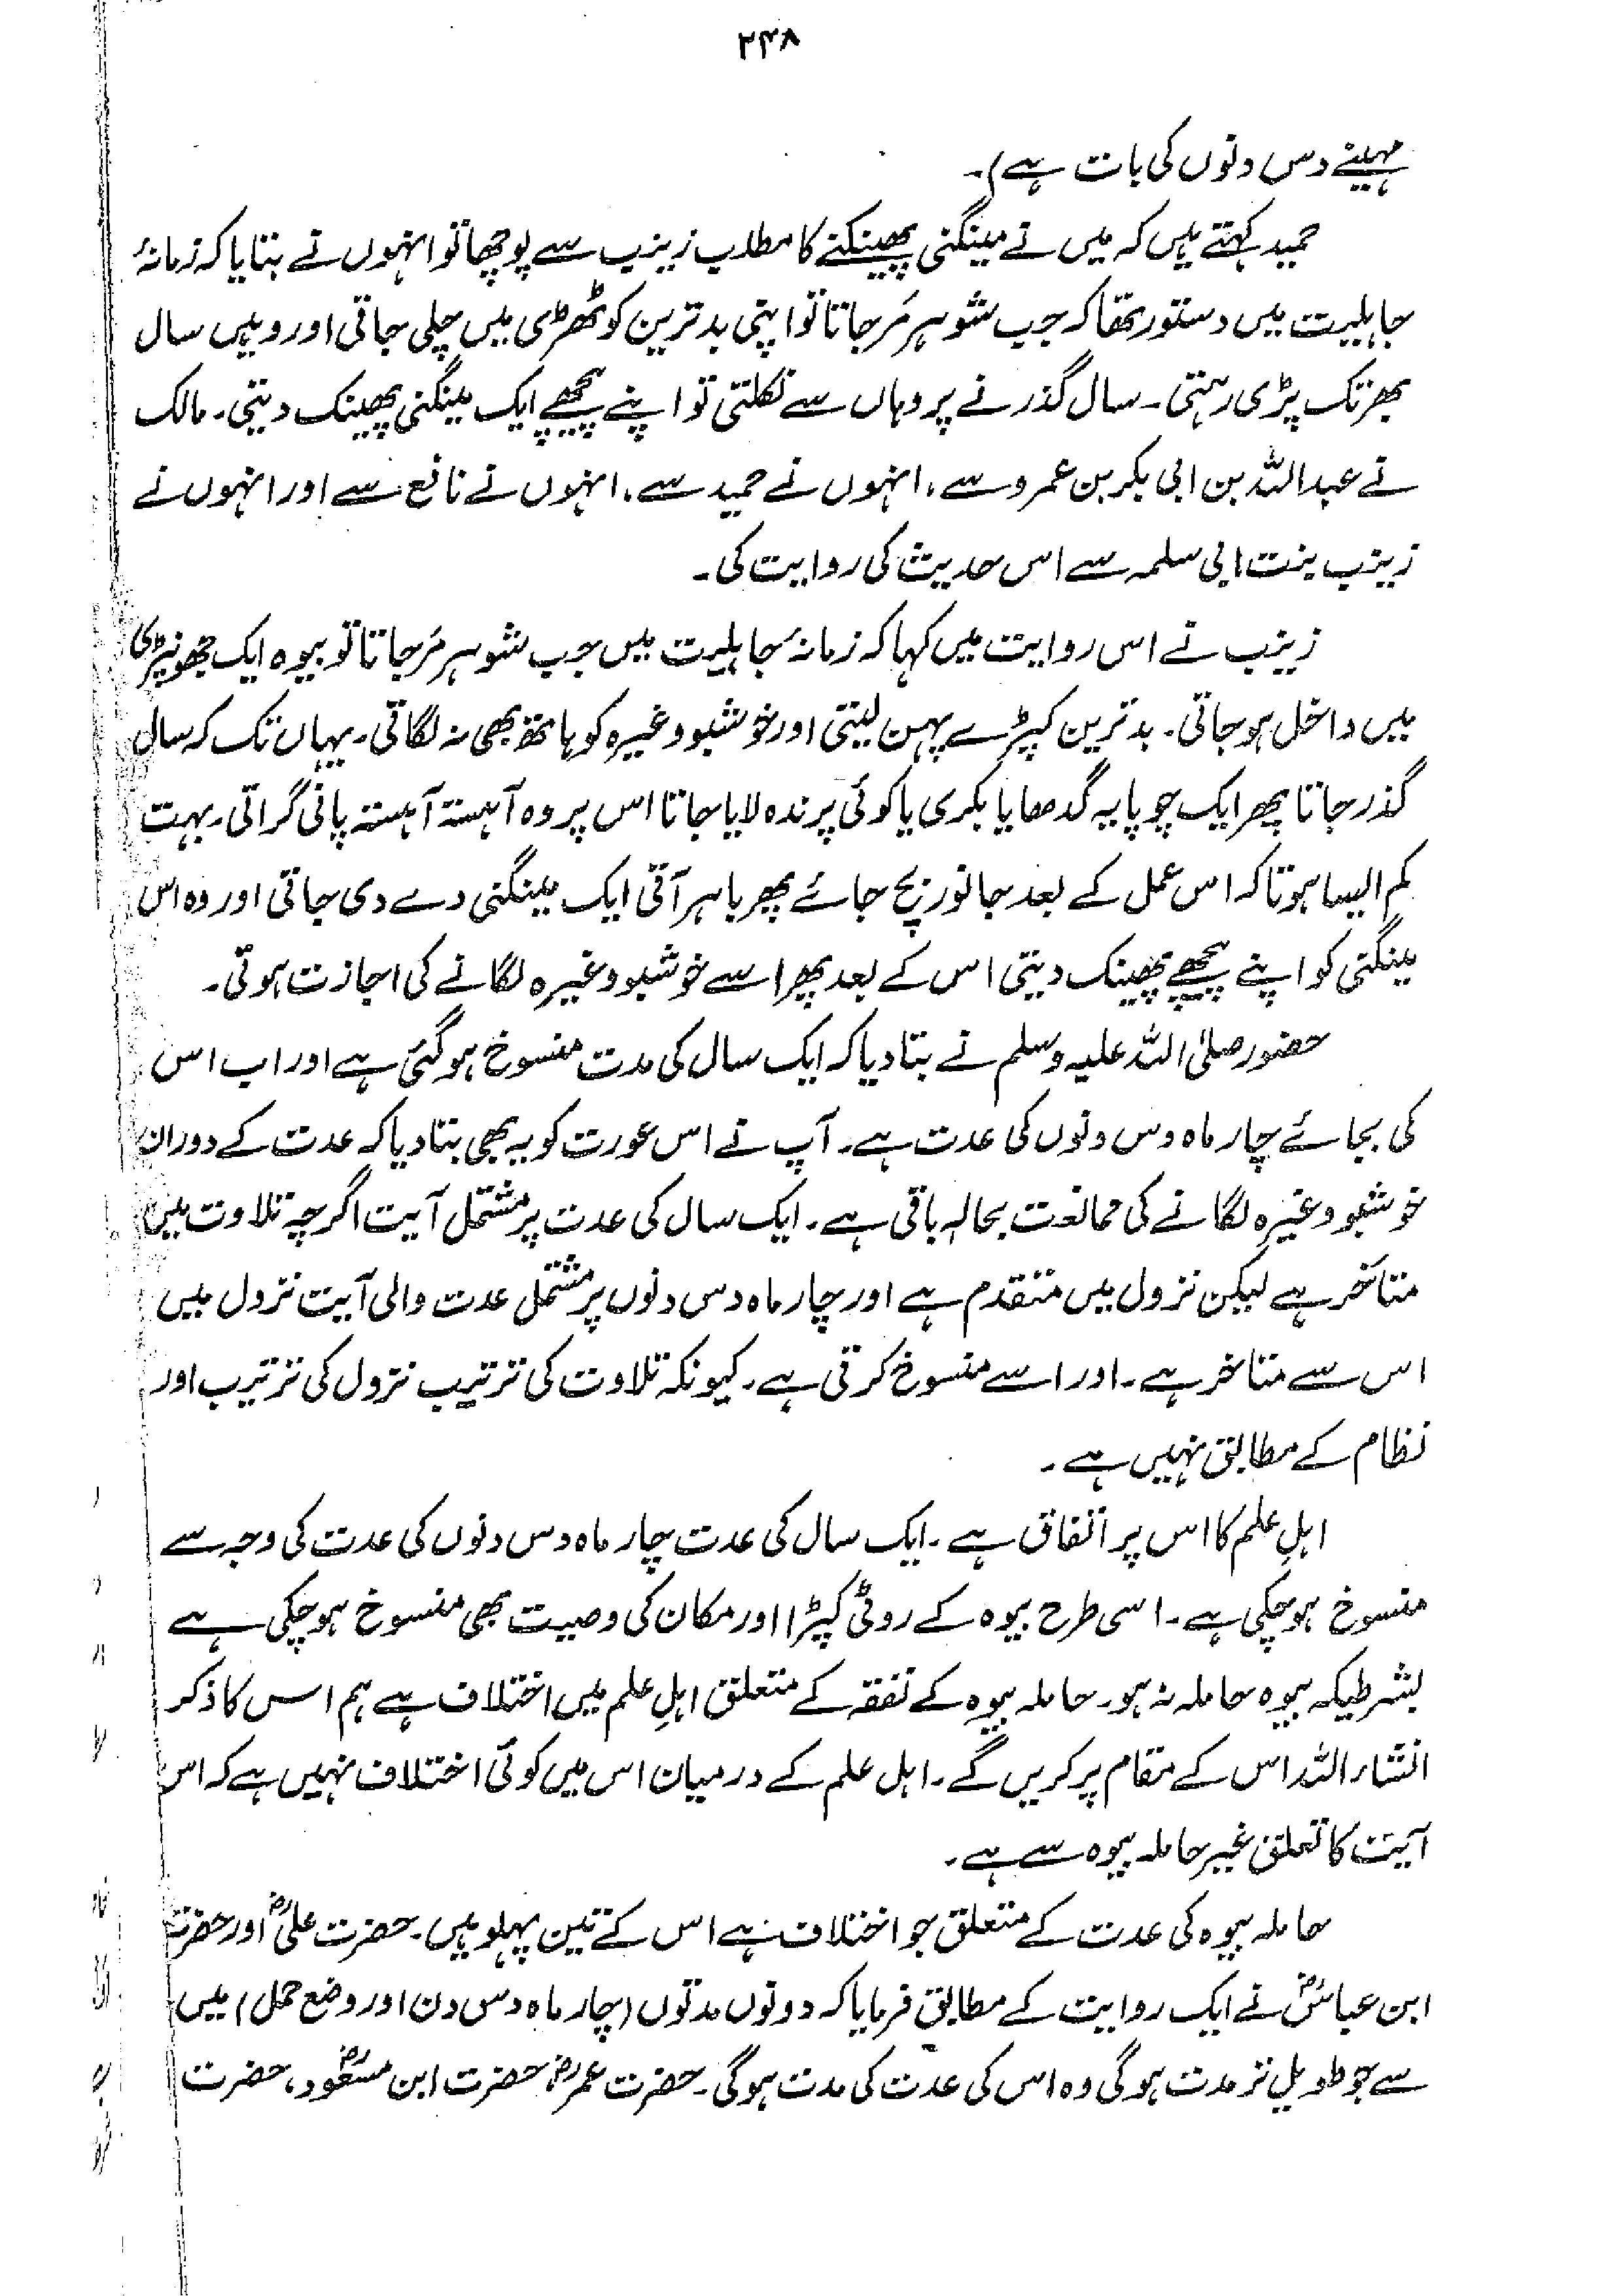 ۲۴۸
مہینے دس دنوں کی بات ہے)۔
حمید کہتے ہیں کہ میں نے مینگنی پھینکنے کا مطلب زینب سے پوچھا تو انہوں نے بتایا کہ زمانۂ
جاہلیت میں دستور تھا کہ جب شوہر مَر جاتا تو اپنی بدترین کوٹھڑی میں چلی جاتی اور وہیں سال
بھر تک پڑی رہتی۔ سال گذرنے پر وہاں سے نکلتی تو اپنے پیچھے ایک مینگنی پھینک دیتی۔ مالک
نے عبداللہ بن ابی بکر بن عمرو سے، انہوں نے حمید سے، انہوں نے نافع سے اور انہوں نے
زینب بنت ابی سلمہ سے اس حدیث کی روایت کی۔
زینب نے اس روایت میں کہا کہ زمانۂ جاہلیت میں جب شوہر مَر جاتا تو بیوہ ایک جھونپڑی
میں داخل ہو جاتی۔ بدترین کپڑے پہن لیتی اور خوشبو وغیرہ کو ہاتھ بھی نہ لگاتی۔ یہاں تک کہ سال
گذر جاتا پھر ایک چوپایہ گدھا یا بکری یا کوئی پرندہ لایا جاتا اس پر وہ آہستہ آہستہ پانی گراتی۔ بہت
کم ایسا ہوتا کہ اس عمل کے بعد جانور بچ جائے پھر باہر آتی ایک مینگنی دے دی جاتی اور وہ اس
مینگنی کو اپنے پیچھے پھینک دیتی اس کے بعد پھر اسے خوشبو وغیرہ لگانے کی اجازت ہوتی۔
حضور صلی اللہ علیہ وسلم نے بتا دیا کہ ایک سال کی مدت منسوخ ہو گئی ہے اور اب اس
کی بجائے چار ماہ دس دنوں کی عدت ہے۔ آپ نے اس عورت کو یہ بھی بتا دیا کہ عدت کے دوران
خوشبو وغیرہ لگانے کی ممانعت بحالہٖ باقی ہے۔ ایک سال کی عدت پر مشتمل آیت اگرچہ تلاوت میں
متأخر ہے لیکن نزول میں متقدم ہے اور چار ماہ دس دنوں پر مشتمل عدت والی آیت نزول میں
اس سے متاخر ہے۔ اور اسے منسوخ کرتی ہے۔ کیونکہ تلاوت کی ترتیب نزول کی ترتیب اور
نظام کے مطابق نہیں ہے۔
اہلِ علم کا اس پر اتفاق ہے۔ ایک سال کی عدت چار ماہ دس دنوں کی عدت کی وجہ سے
منسوخ ہو چکی ہے۔ اسی طرح بیوہ کے روٹی کپڑا اور مکان کی وصیت بھی منسوخ ہو چکی ہے
بشرطیکہ بیوہ حاملہ نہ ہو۔ حاملہ بیوہ کے نفقہ کے متعلق اہلِ علم میں اختلاف ہے ہم اس کا ذکر
انشاء اللہ اس کے مقام پر کریں گے۔ اہل علم کے درمیان اس میں کوئی اختلاف نہیں ہے کہ اس
آیت کا تعلق غیر حاملہ بیوہ سے ہے۔
حاملہ بیوہ کی عدت کے متعلق جو اختلاف ہے اس کے تین پہلو ہیں۔ حضرت علیؓ اور حضرت
ابن عباسؓ نے ایک روایت کے مطابق فرمایا کہ دونوں مدتوں (چار ماہ دس دن اور وضع حمل) میں
سے جو طویل تر مدت ہوگی وہ اس کی عدت کی مدت ہوگی۔ حضرت عمرؓ، حضرت ابن مسعودؓ، حضرت